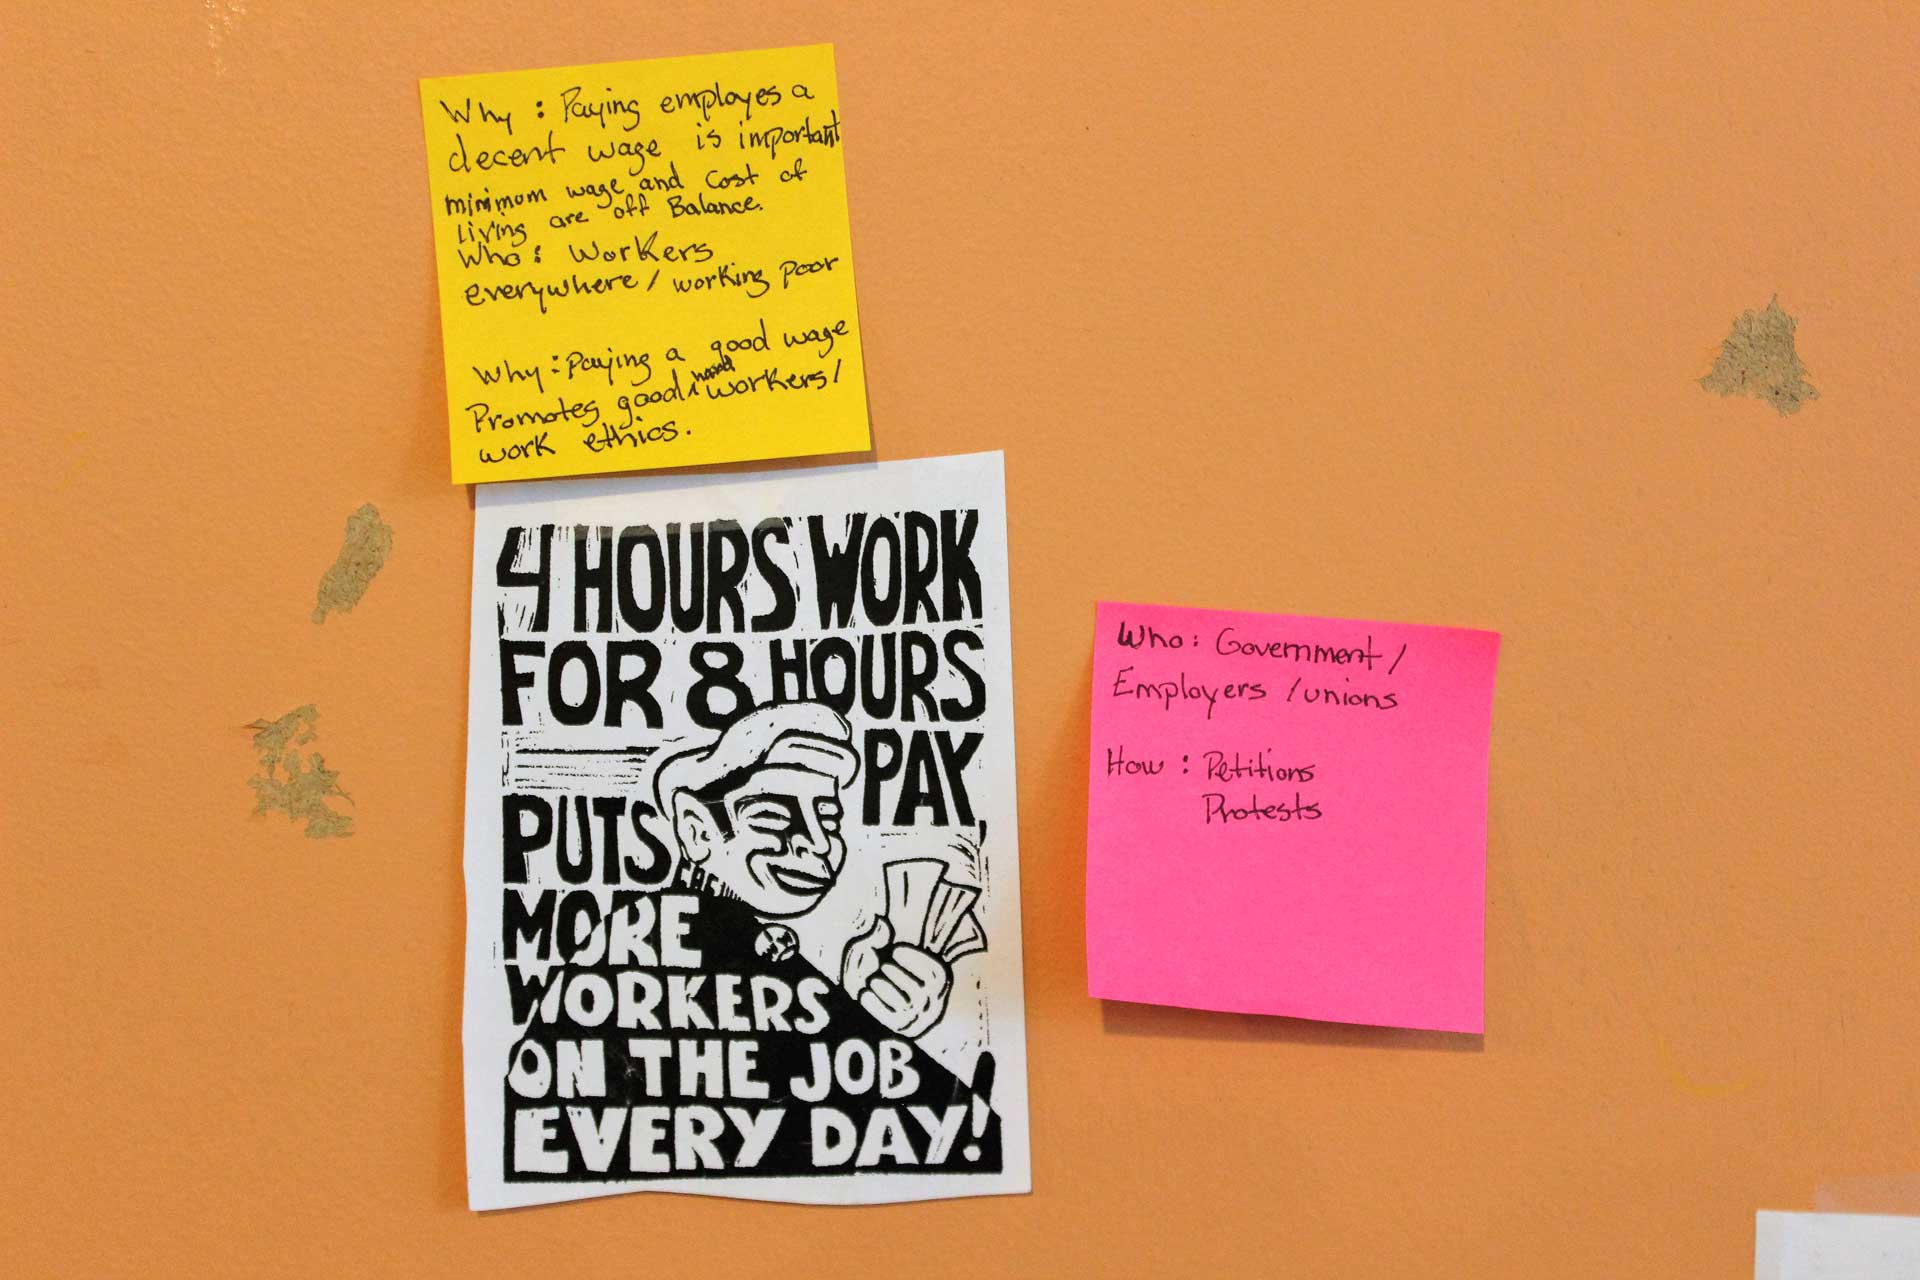 Why : Paying employes a
decent wage is important
minimum wage and cost of
living are off Balance.
Who : Workers
everywhere / working poor
Why : Paying a good wage
Promotes good ^ hard workers /
work ethics.
4 HOURS WORK
FOR 8 HOURS
PAY,
PUTS
MORE
WORKERS
ON THE JOB
EVERY DAY!
Who : Government /
Employers / unions
How : Petitions
Protests